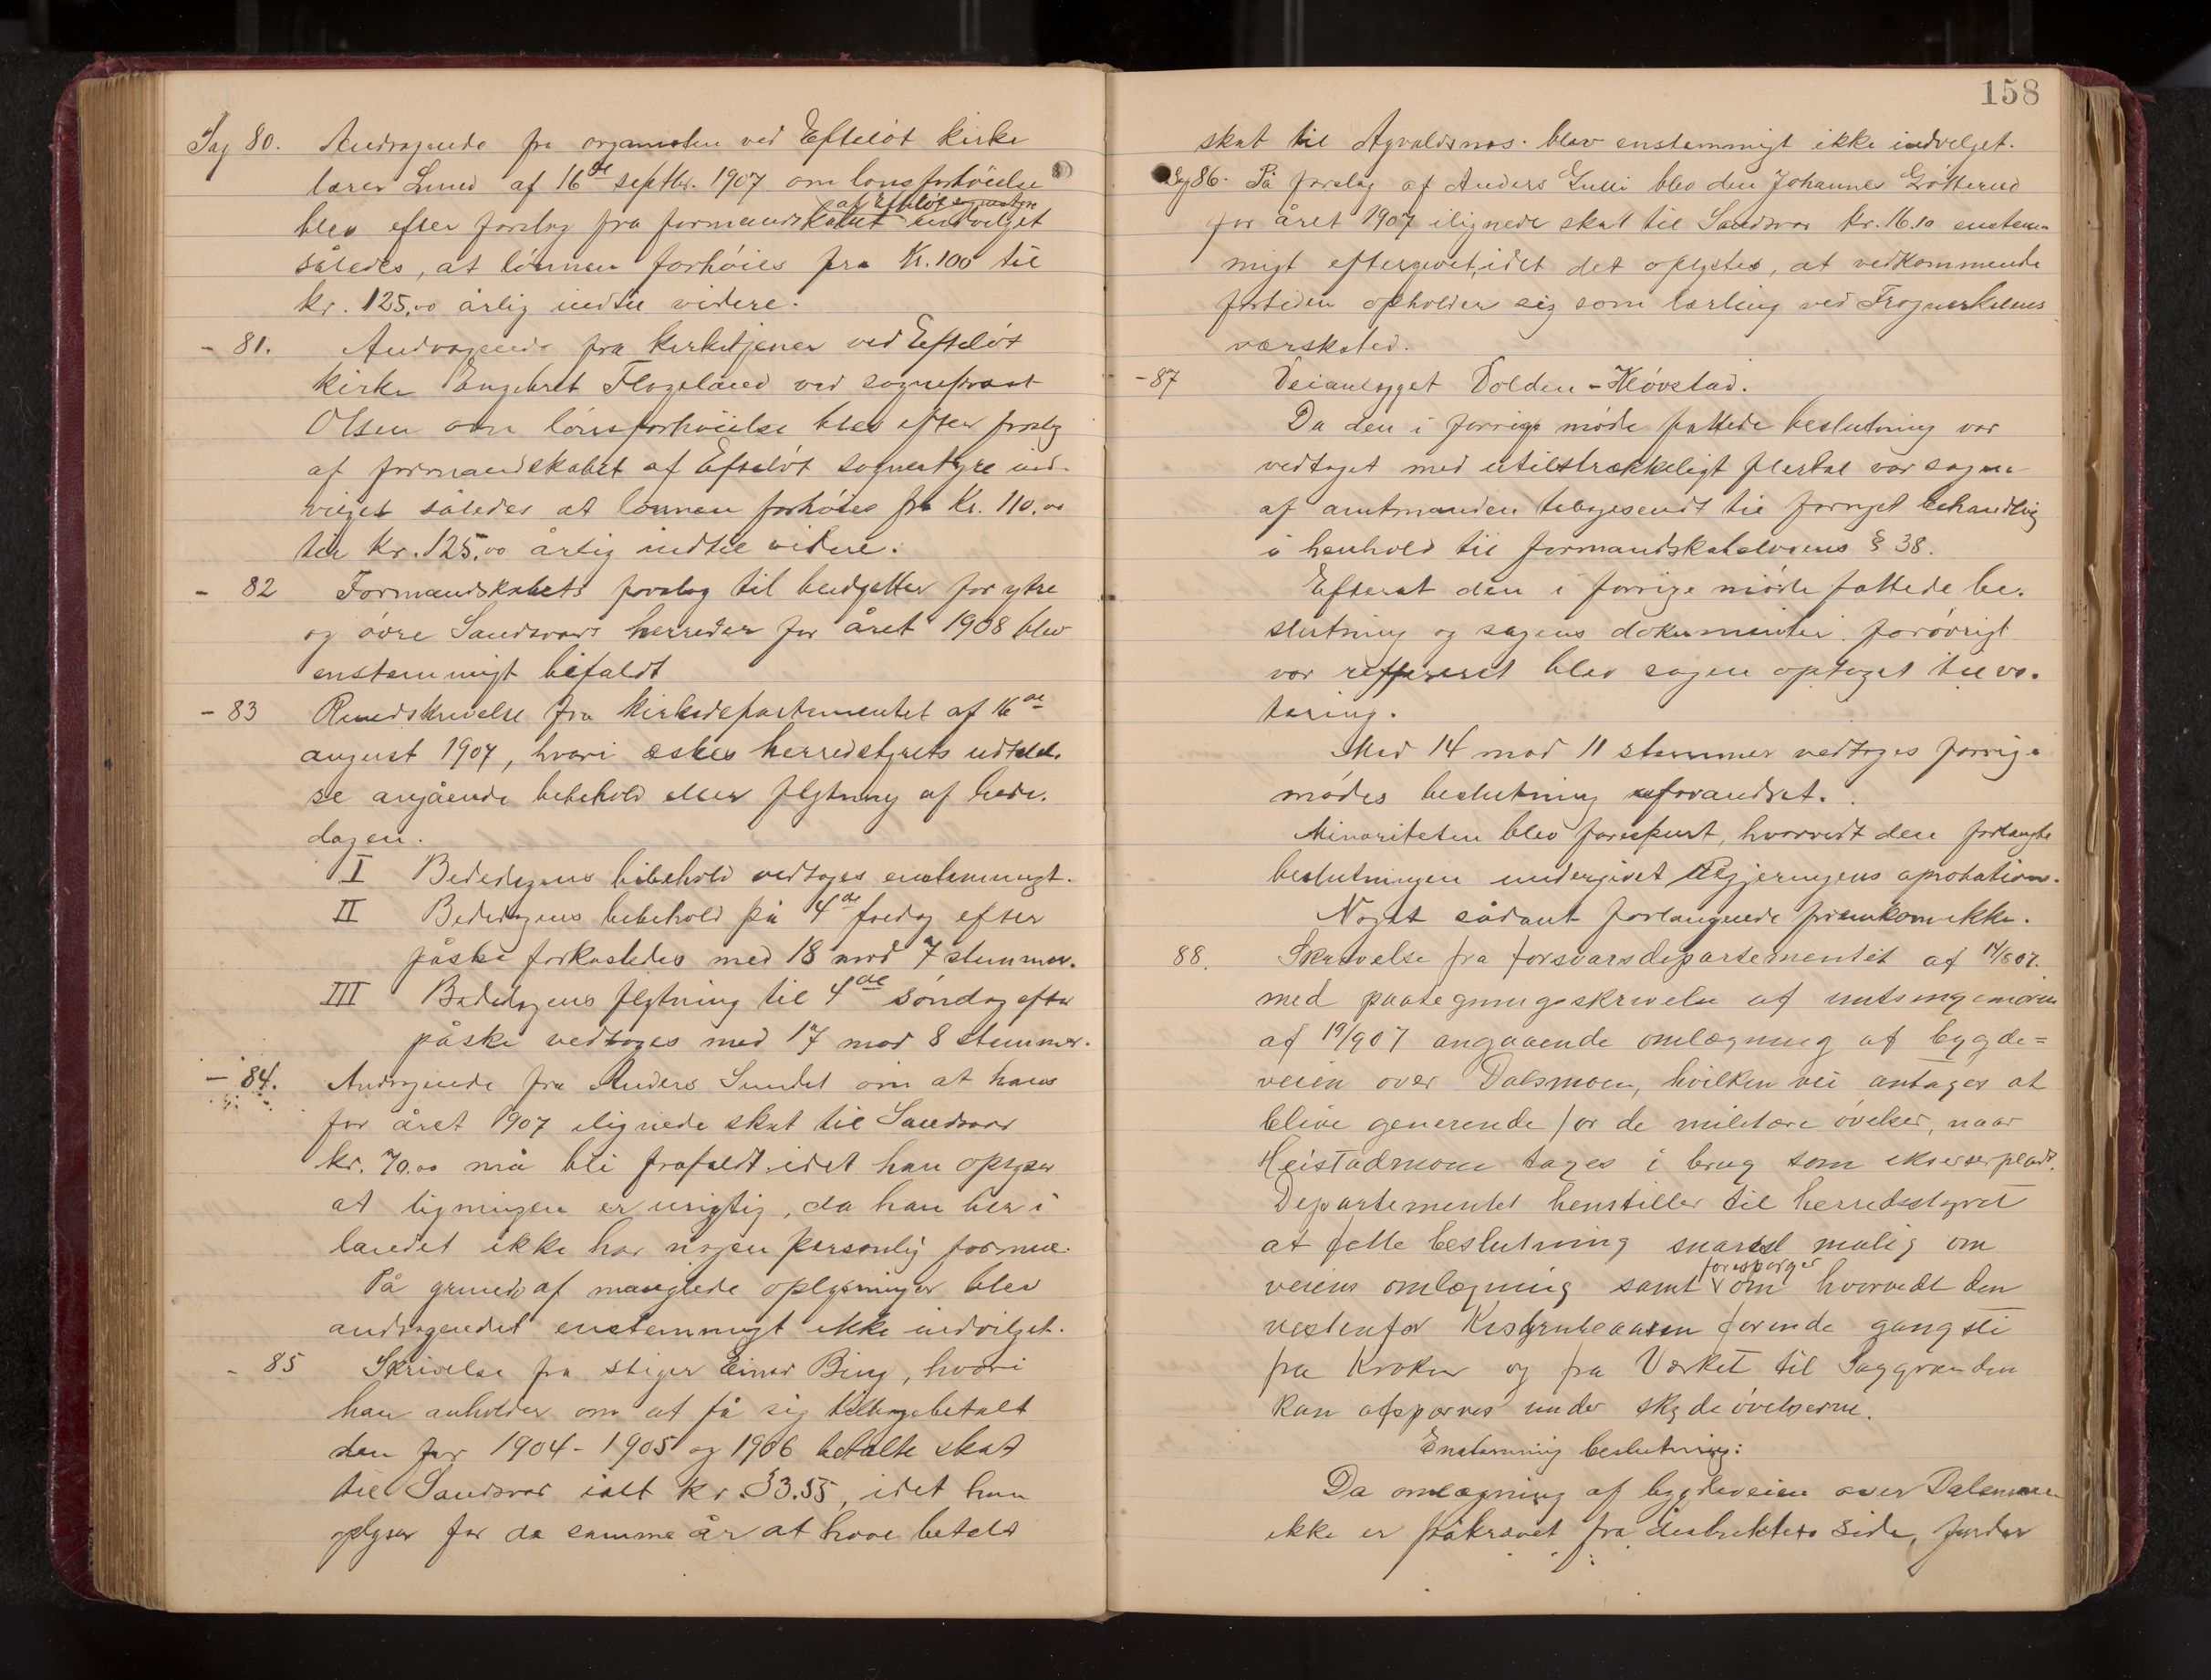 Sag 80. Andragende fra organisten ved Efteløt kirke
lærer Lund af 16de septbr. 1907 om lønsforhöielse
af Efteløt sognestyre
blev efter forslag fra formandskabet indvilget
således, at lönnen forhöies fra Kr. 100 til
kr. 125,00 årlig indtil videre.
- 81. Andragende fra kirketjener ved Efteløt
kirke Engebret Flageland ved sogneprest
Olsen om lönsforhöielse blev efter forslg
af formandskabet af Efteløt sognestyre ind-
vilget således at lönnen forhöies fra Kr. 110.00
til Kr. 125.00 årlig indtil videre.
- 82 Formandskabets forslag til budgetter for ytre
og övre Sandsvær herreder for året 1908 blev
enstemmigt bifaldt
- 83 Rundskrivelse fra kirkedepartementet af 16de
august 1907, hvori æskes herredstyrets udtalel-
se angående bebehold eller flytning af bede-
dagen.
I Bededagens bibehold vedtoges enstemmigt.
II Bededagens bebehold på 4de fredag efter
påske forkastedes med 18 mod 7 stemmer.
III Bededagens flytning til 4de söndag efter
påske vedtoges med 17 mod 8 stemmer.
- 84. Andragende fra Anders Sundet om at hans
for året 1907 ilignede skat til Sandsvær
kr. 70.00 må bli frafaldt, idet han oplyser
at ligningen er urigtig, da han her i
landet ikke har nogen personlig formue.
På grund af manglede oplysninger blev
andragendet enstemmigt ikke indvilget.
- 85 Skrivelse fra stiger Einar Bing, hvori
han anholder om at få sig tilbagebetalt
den for 1904 - 1905 og 1906 betalte skat
til Sandsvær ialt kr. 33.55, idet han
oplyser for de samme år at have betalt
158
skat til Agvaldsnes. blev enstemmigt ikke indvilget.
Sag 86. På forslag af Anders Gulli blev den Johannes Grötterud
for året 1907 ilignede skat til Sandsvær kr. 16.10 enstem-
migt eftergivet, idet det oplystes, at vedkommende
fortiden opholder sig som lærling ved Frognerkilens
værksted.
- 87 Veianlægget Volden - Kløvstad.
Da den i forrige möde fattede beslutning var
vedtaget med utilstrækkeligt flertal var sagen
af amtmanden tibagesendt til fornyet behandlig
i henhold til formandskabslovens § 38.
Efterat den i forrige möde fattede be-
slutning og sagens dokumenter forövrigt
var refereret blev sagen optaget til vo-
tering.
Med 14 mod 11 stemmer vedtoges forrige
mödes beslutning uforandret.
Minoriteten blev forespurt, hvorvidt den forlangte
beslutningen undergivet Regjeringens aprobation.
Noget sådant forlangende fremkom ikke.
88. Skrivelse fra forsvarsdepartementet af 14/8 07.
med paategningsskrivelse af amtsingeniøren
af 19/9 07 angaaende omlægning af bygde=
veien over Dalsmoen, hvilken vei antages at
blive generende for de militære övelser, naar
Heistadmoen tages i brug som ekserserplads.
Departementet henstiller til herredsstyret
at fatte beslutning snarest mulig om
foresporger
veiens omlægning samt om hvorvidt den
vestenfor Kisgrubeaasen förende gangsti
fra Kroken og fra Verket til Saggrenden
kan afsperres under skydeövelserne.
Enstemmig beslutning:
Da omlægning af bygdeveien over Dalsmoen
ikke er påkrævet fra distriktets side, finder